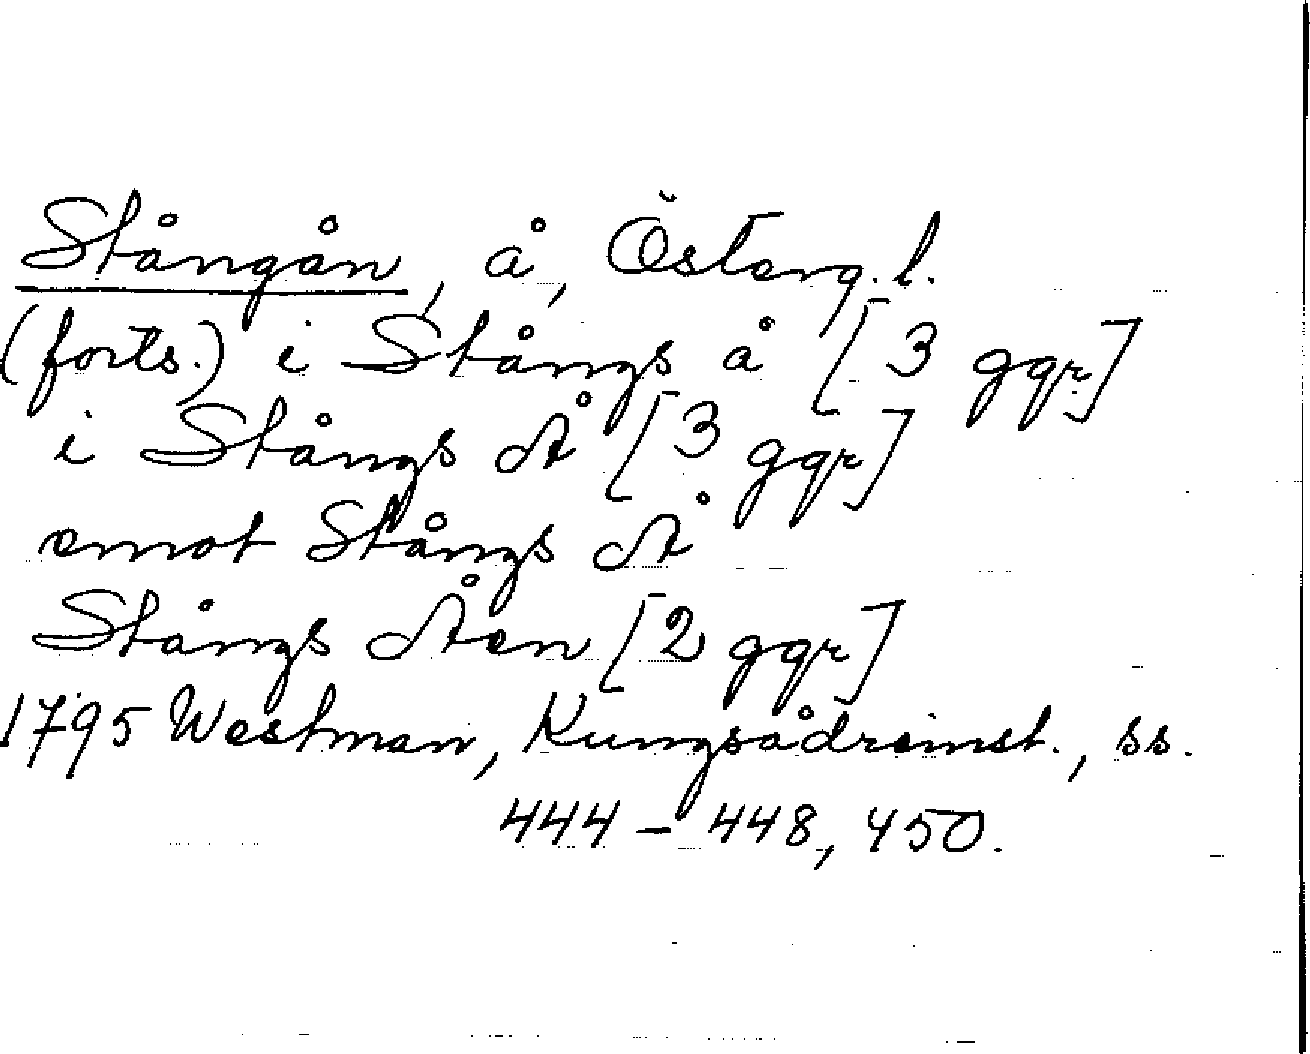 Stångån, å, Österg. l.
(forts.) i Stångs å [3 ggr]
i Stångs Å [3 ggr]
emot Stångs Å
Stångs Åen [2 ggr]
1795 Westman, Kungsådreinst., ss.
444 – 448, 450.